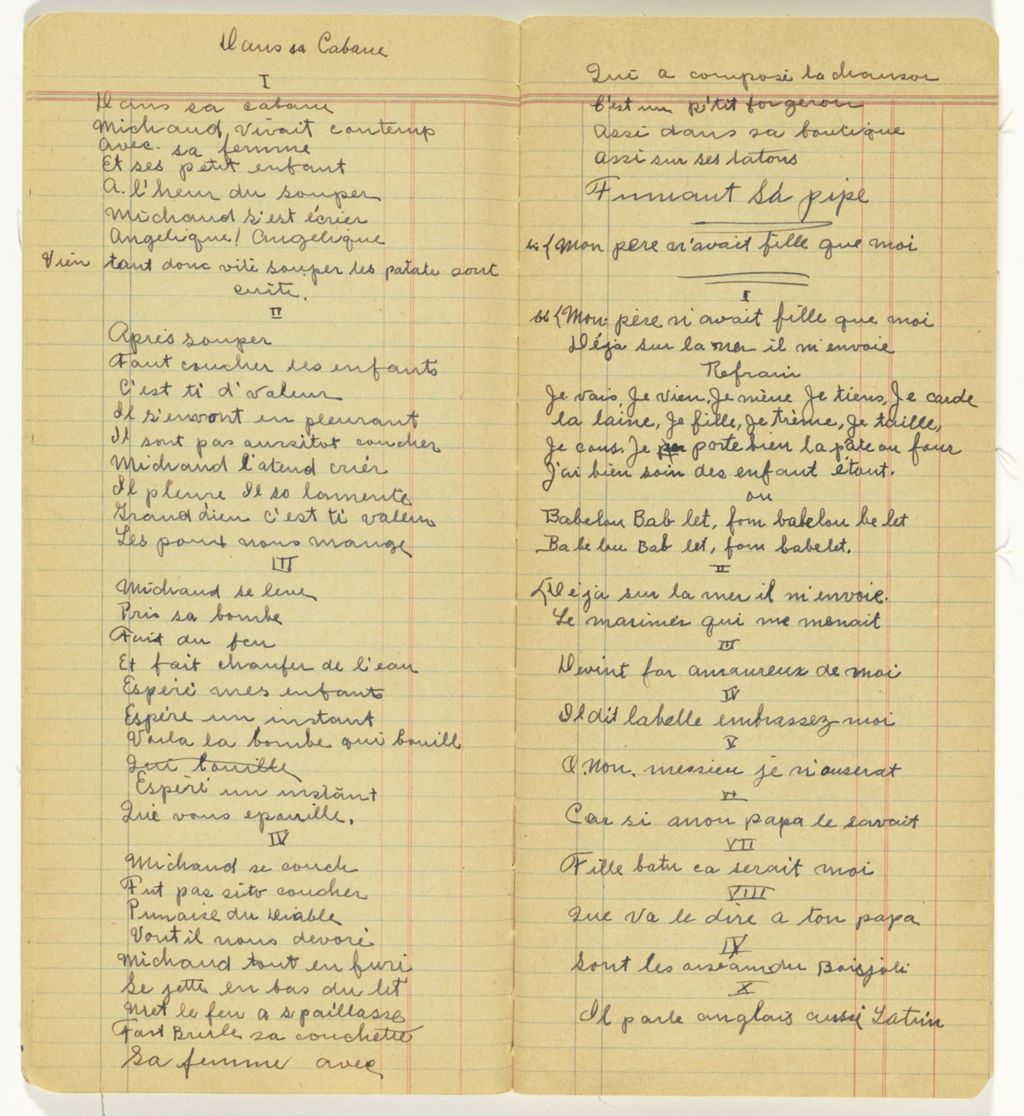 Dans sa Cabane
I
Dans sa cabane
Michaud, vivait contemp
Avec. sa femme
Et ses petit enfant
A. l'heur du souper
Michaud s'est écrier
Angelique! Angelique
Vien tant donc vite souper les patate sont
cuite.
II
Après souper
Faut coucher les enfants
C'est ti d'valeur
Il s'envont en pleurant
Il sont pas aussitot coucher
Michaud l'atend crier
Il pleure Il se lamente
Grand dieu c'est ti valeur
Les poux nous mange
III
Michaud se leve
Pris sa bombe
Fait du feu
Et fait chaufer de l'eau
Espéré mes enfants
Espére un instant
Voila la bombe qui bouill
Qui bouille
Espéré un instant
Qué vous epouille.
IV
Michaud se couch
Fut pas sito coucher
Punaise du Diable
Vont il nous devoré
Michaud tout en furi
Se jette en bas du lit
Met le feu a s paillasse
Fait Brule sa couchette
Sa femme avec
Qui a composé la chanson
C'est un p'tit forgeron
Assi dans sa boutique
Assi sur ses talons
Fumant Sa pipe
bis {Mon père n'avait fille que moi
I
bis {Mon père n'avait fille que moi
Déja sur la mer il m'envoie
Refrain
Je vais, Je vien, Je mène Je tiens, Je carde
la laine, Je fille, Je trème, Je taille,
Je cous. Je porte bien la pâte au four
J'ai bien soin des enfant étout.
ou
Babelou Bab let, fom babelou be let
Babelou Bab let, fom babelet.
II
{Déja sur la mer il m'envoie.
Le marinier qui me menait
III
Devint for amoureux de moi
IV
Il dit labelle embrassez-moi
V
O. Non. messieu je n'auserat
VI
Car si mon papa le savait
VII
Fille batu ca serait moi
VIII
Que va le dire a ton papa
IV
Sont les oiseau du Bois joli
X
Il parle anglais aussi Latin